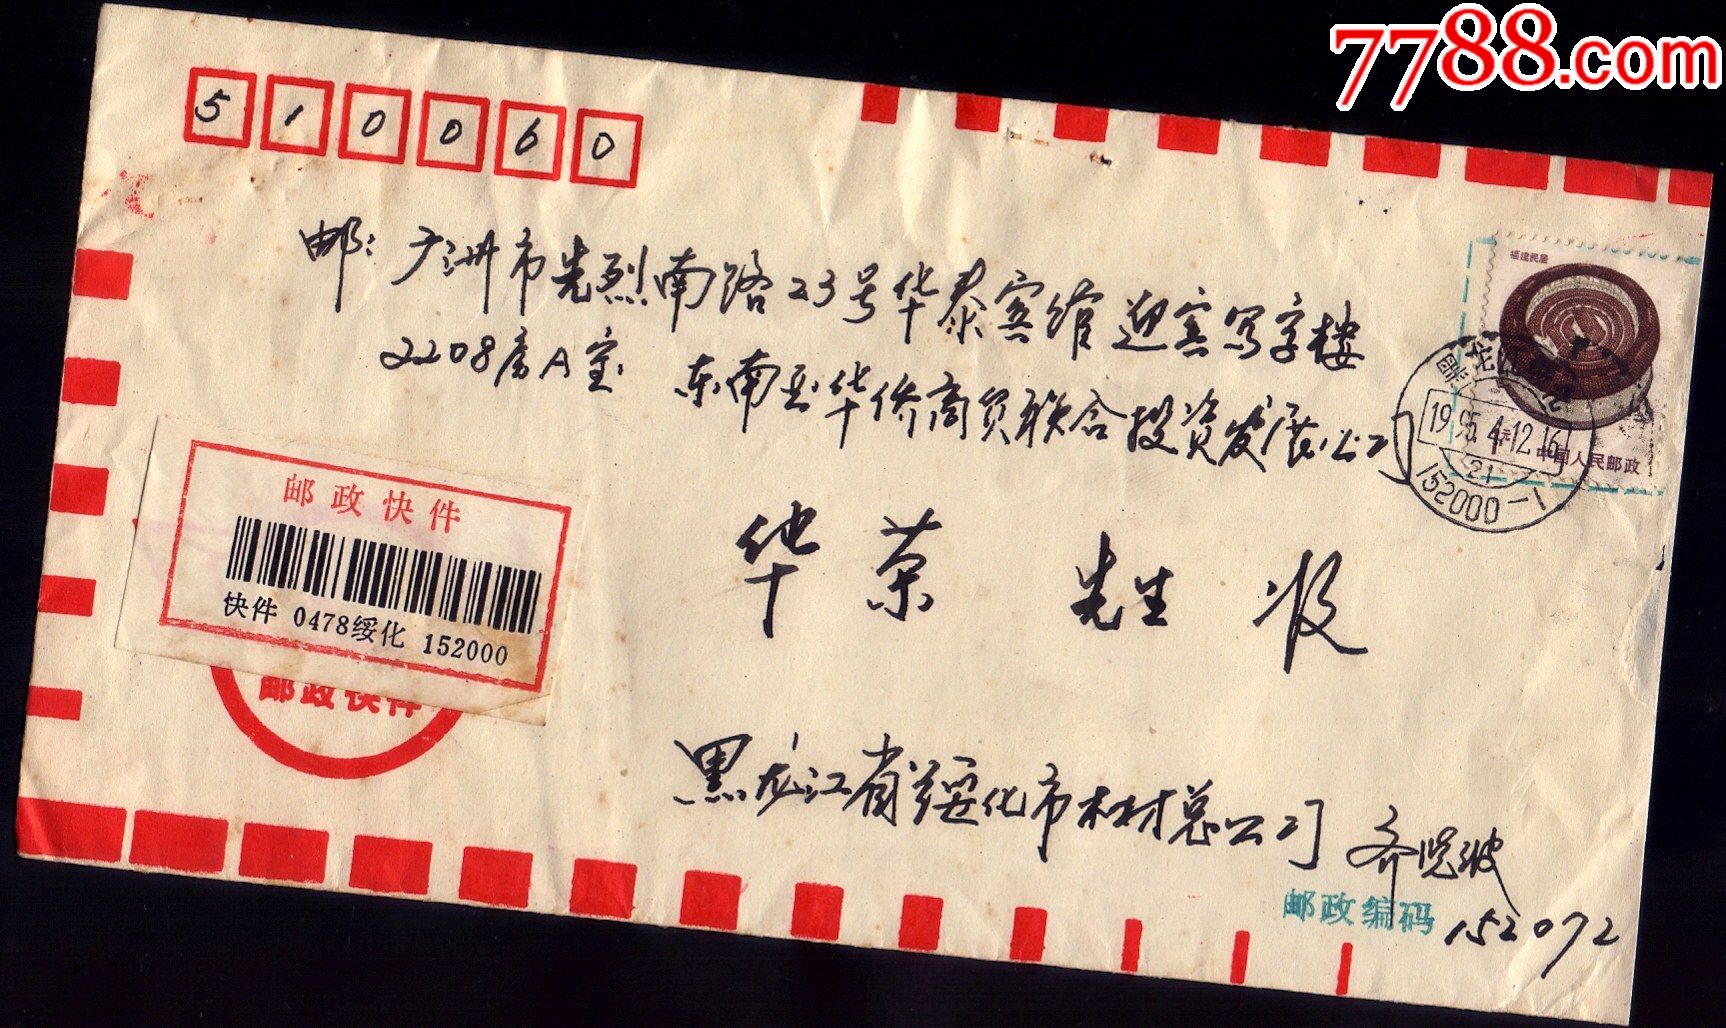 7788.com
510060
邮：广洲市先烈南路23号华泰宾馆 迎宾写字楼
2208房A室 东南亚华侨商贸联合投资发展公司
福建民居
1元 中国人民邮政
1995.4.12.16
21
152000-1
华荣 先生 收
邮政快件
快件 0478绥化 152000
邮政快件
黑龙江省绥化市木材总公司 齐晓波
邮政编码 152072